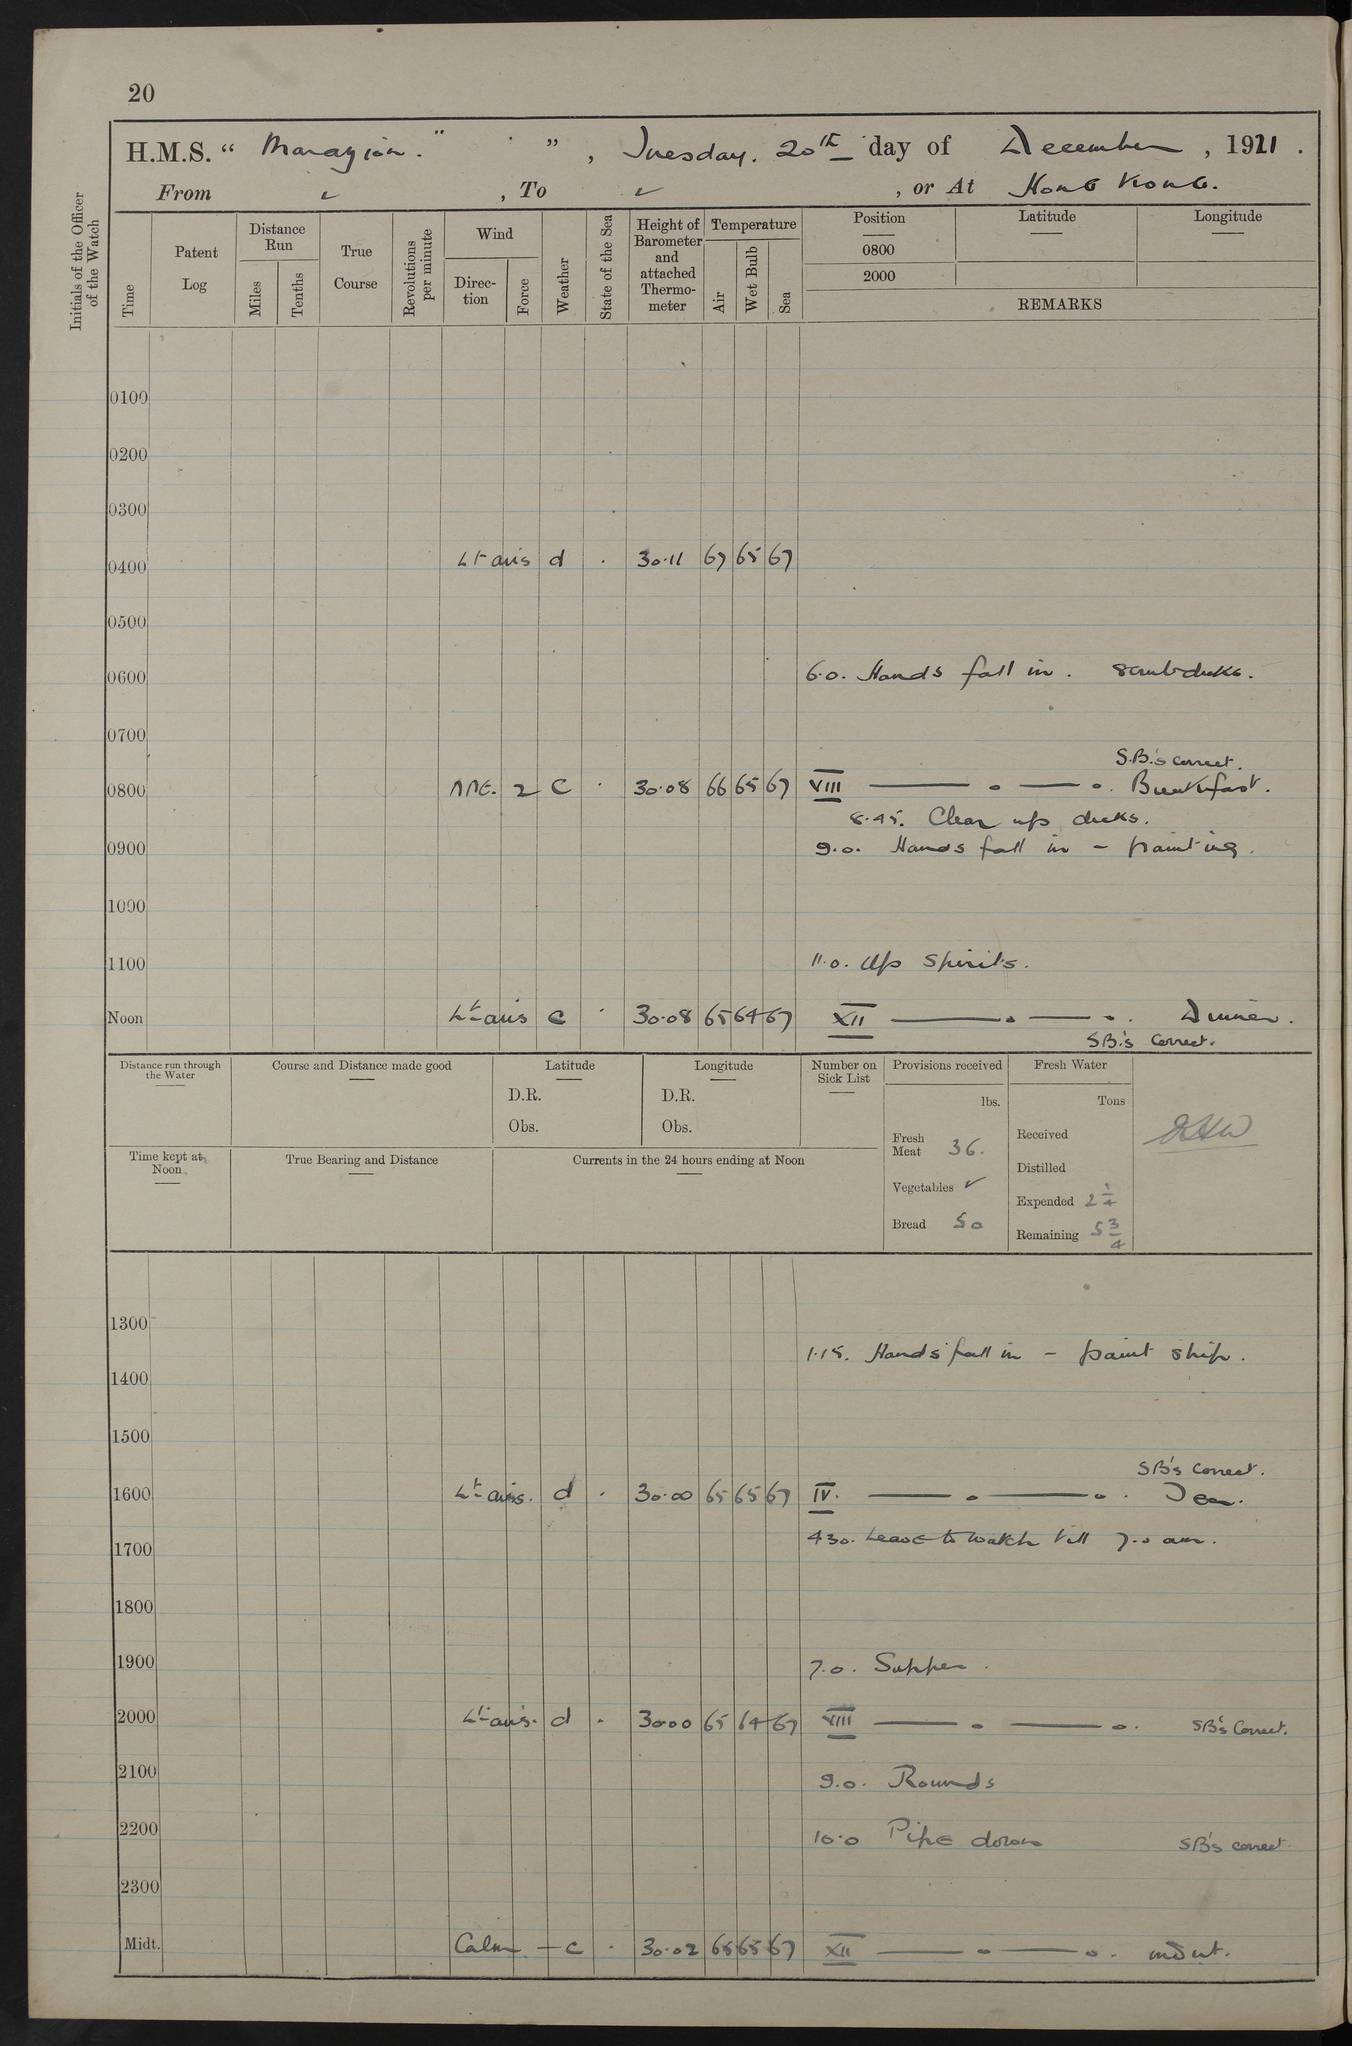 20
H.M.S. “ Marazion. ” ” , Tuesday. 20th day of December , 1921 .
From ✓ , To ✓ , or At Hong Kong.
Initials of the Officer of the Watch
Time
Patent Log
Distance Run
Miles
Tenths
True Course
Revolutions per minute
Wind
Direction
Force
Weather
State of the Sea
Height of Barometer and attached Thermometer
Temperature
Air
Wet Bulb
Sea
Position
0800
2000
Latitude
Longitude
REMARKS
0100
0200
0300
0400 Lt airs d . 30.11 67 65 67
0500
0600 6.0. Hands fall in. Scrub decks.
0700
S.B.'s correct.
0800 NNE. 2 C . 30.08 66 65 67 VIII ——— o —— o. Breakfast.
8.45. Clear up decks.
0900 9.0. Hands fall in – painting.
1000
1100 11.0. Up Spirits.
Noon Lt airs c . 30.08 65 64 67 XII ——— o —— o. Dinner.
SB's Correct.
Distance run through the Water
Course and Distance made good
Latitude
D.R.
Obs.
Longitude
D.R.
Obs.
Number on Sick List
Provisions received
lbs.
Fresh Meat 36.
Vegetables ✓
Bread 50
Fresh Water
Tons
Received
Distilled
Expended 2 1/4
Remaining 5 3/4
Time kept at Noon
True Bearing and Distance
Currents in the 24 hours ending at Noon
1300
1.15. Hands fall in – paint ship.
1400
1500
SB's Correct.
1600 Lt airs. d . 30.00 65 65 67 IV. ——— o ——— o. Tea.
4.30. Leave to watch till 7.0 am.
1700
1800
1900 7.0. Supper.
2000 Lt airs. d . 30.00 65 64 67 VIII ——— o ——— o. SB's Correct.
2100 9.0. Rounds
2200 10.0 Pipe down SB's correct.
2300
Midt. Calm – c . 30.02 65 65 67 XII ——— o ——— o.